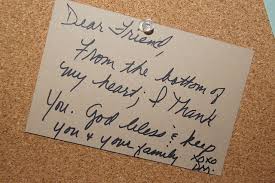 Dear Friend,
From the bottom of
my heart, I Thank
You. God bless & keep
you & your family xoxo